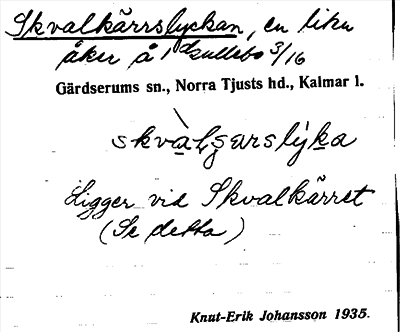 Skvalkärrslyckan, en liten
åker å Skullebo 3/16
Gärdserums sn., Norra Tjusts hd., Kalmar l.
skvàlçarslýka
Ligger vid Skvalkärret
(Se detta)
Knut-Erik Johansson 1935.